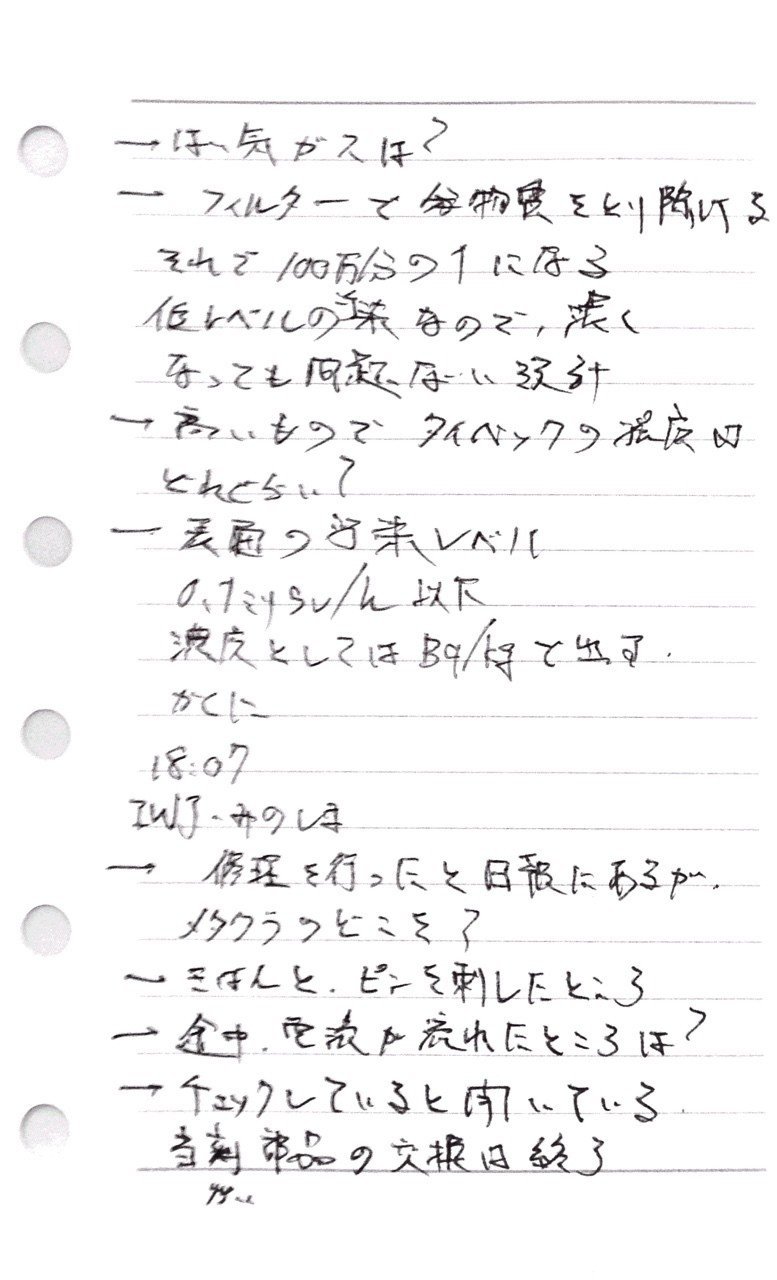 → はい気ガスは?
→ フィルターで 物質をとり除ける
それで 100万分の1になる
低レベルの汚染なので、濃く
なっても問題ない設計
→ 高いもので タイベックの濃度は
どれぐらい?
→ 表面の汚染レベル
0.1ミリSv/h 以下
濃度としてはBq/kgで出す.
かくに
18:07
IWJ・みのしま
→ 修理を行ったと日報にあるが、
メタクラのどこを?
→ きほんと、ピンを刺したところ
→ 途中、電流が流れたところは?
→ チェックしていると聞いている.
部品の交換は終了